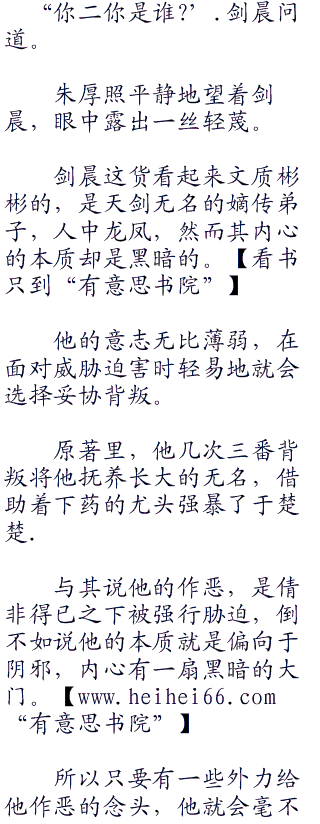 “你二你是谁?’.剑晨问
道。
朱厚照平静地望着剑
晨，眼中露出一丝轻蔑。
剑晨这货看起来文质彬
彬的，是天剑无名的嫡传弟
子，人中龙凤，然而其内心
的本质却是黑暗的。【看书
只到“有意思书院”】
他的意志无比薄弱，在
面对威胁迫害时轻易地就会
选择妥协背叛。
原著里，他几次三番背
叛将他抚养长大的无名，借
助着下药的尤头强暴了于楚
楚.
与其说他的作恶，是倩
非得已之下被强行胁迫，倒
不如说他的本质就是偏向于
阴邪，内心有一扇黑暗的大
门。【www.heihei66.com
“有意思书院”】
所以只要有一些外力给
他作恶的念头，他就会毫不